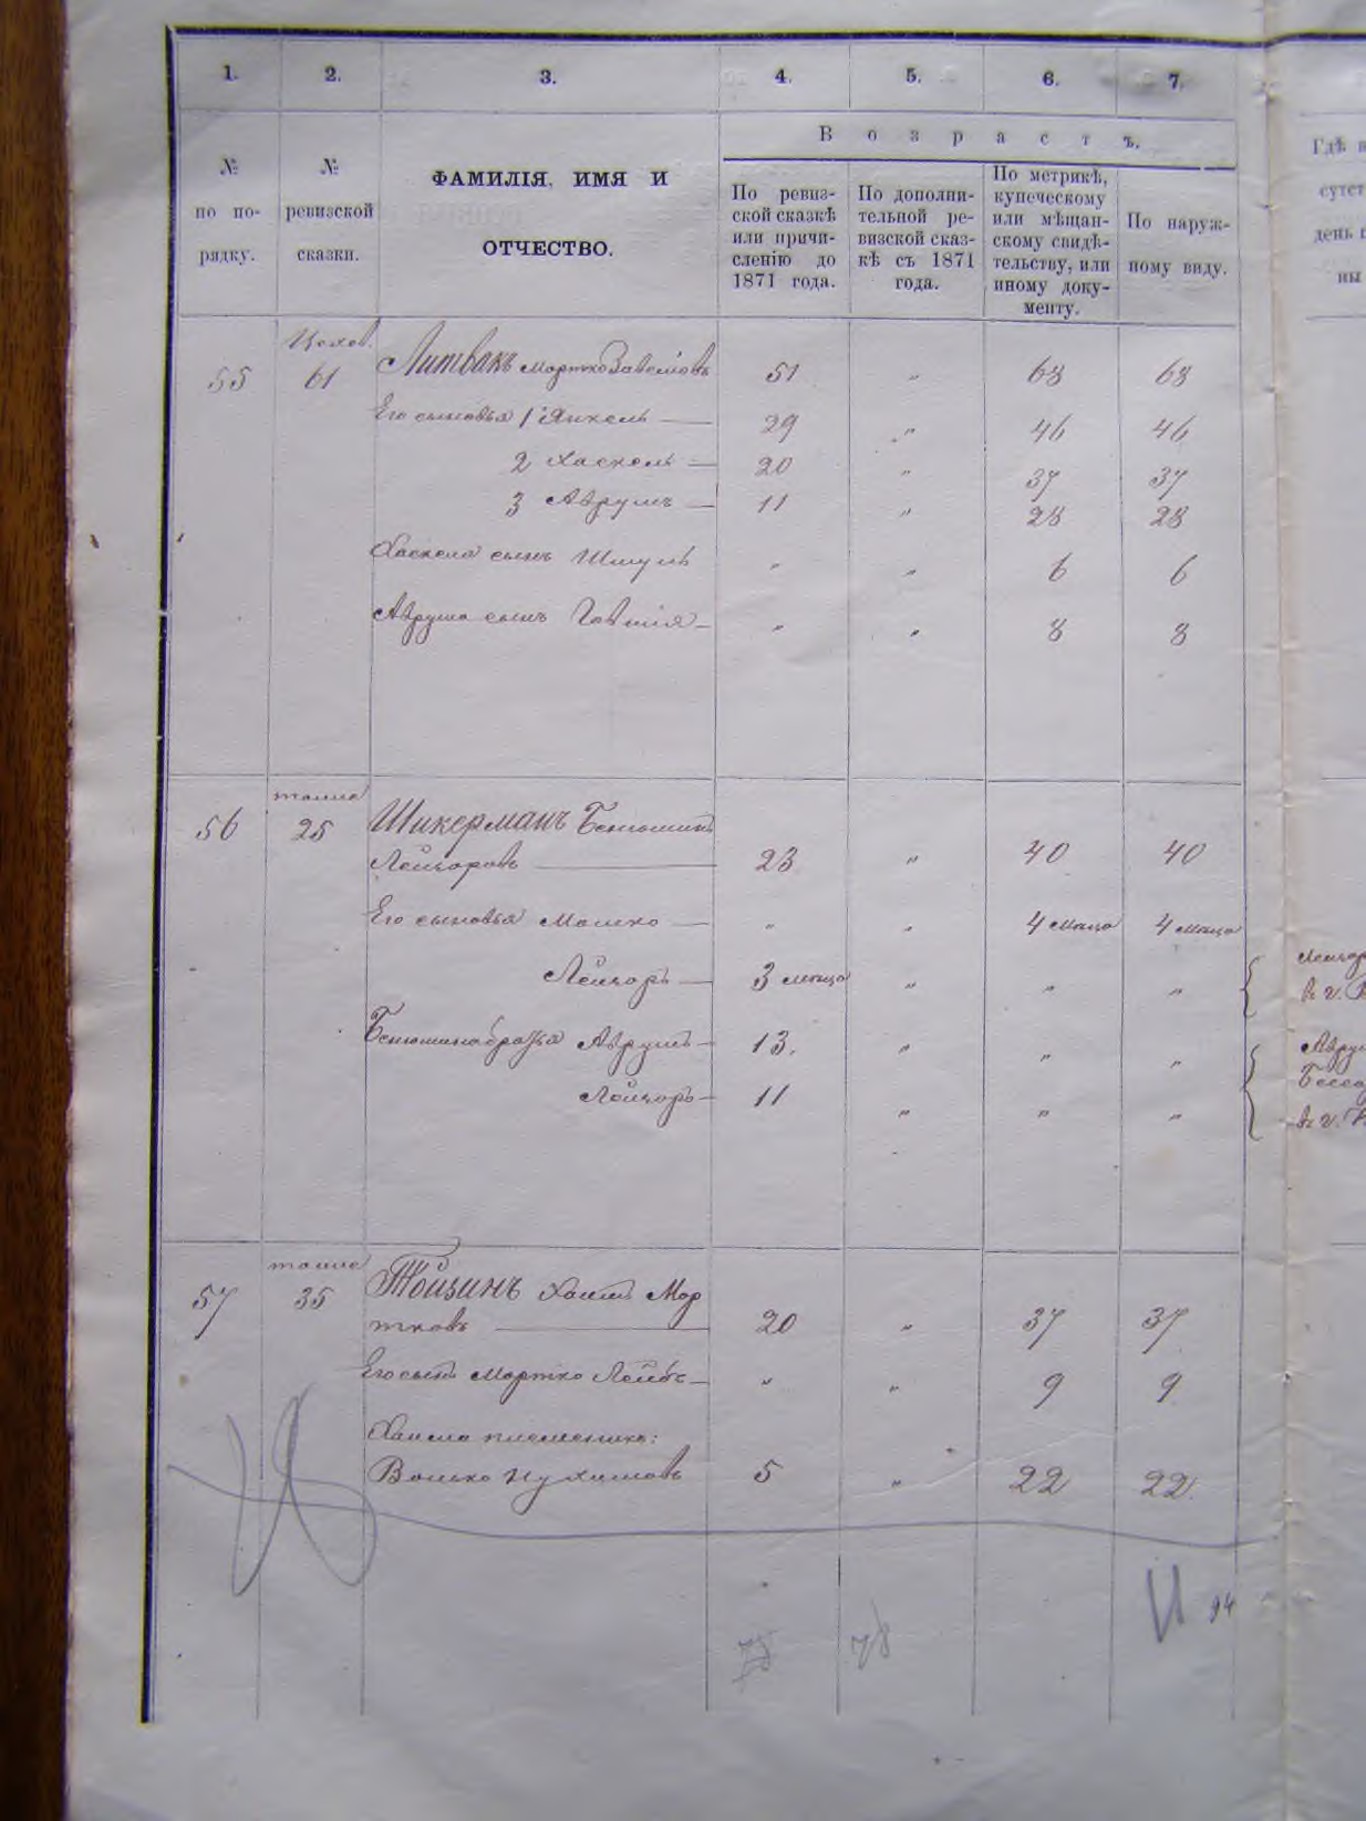 1. 2. 3. 4. 5. 6. 7.
Возрастъ.
№ по по-рядку.
№ ревизской сказки.
ФАМИЛІЯ, ИМЯ И
ОТЧЕСТВО.
По ревиз-
ской сказкѣ
или причи-
сленію до
1871 года.
По дополни-
тельной ре-
визской сказ-
кѣ съ 1871
года.
По метрикѣ,
купеческому
или мѣщан-
скому свидѣ-
тельству, или
иному доку-
менту.
По наруж-
ному виду.
Гдѣ
сутст
день
ны
55 61 Литвакъ Мортко 51 „ 68 68
Его сыновья 1 Янкель 29 „ 46 46
2 Хаскель 20 „ 37 37
3 Аврумъ 11 „ 28 28
Хаскеля сынъ Шмуль „ „ 6 6
Аврума сынъ Говшія „ „ 8 8
тоже
56 25 Шикерманъ Беньюминъ
Лейзоровъ 23 „ 40 40
Его сыновья Мошко „ „ 4 мѣсяца 4 мѣсяца
Лейзоръ 3 мѣсяца „ „ „
Беньюмина братья Аврумъ 13. „ „ „
Лейзоръ 11 „ „ „
тоже
57 35 Тойзинъ Хаимъ Мор
тковъ 20 „ 37 37
Его сынъ Мортко Лейбъ „ „ 9 9
Хаима племенникъ:
Волько Нухимовъ 5 „ 22 22
94